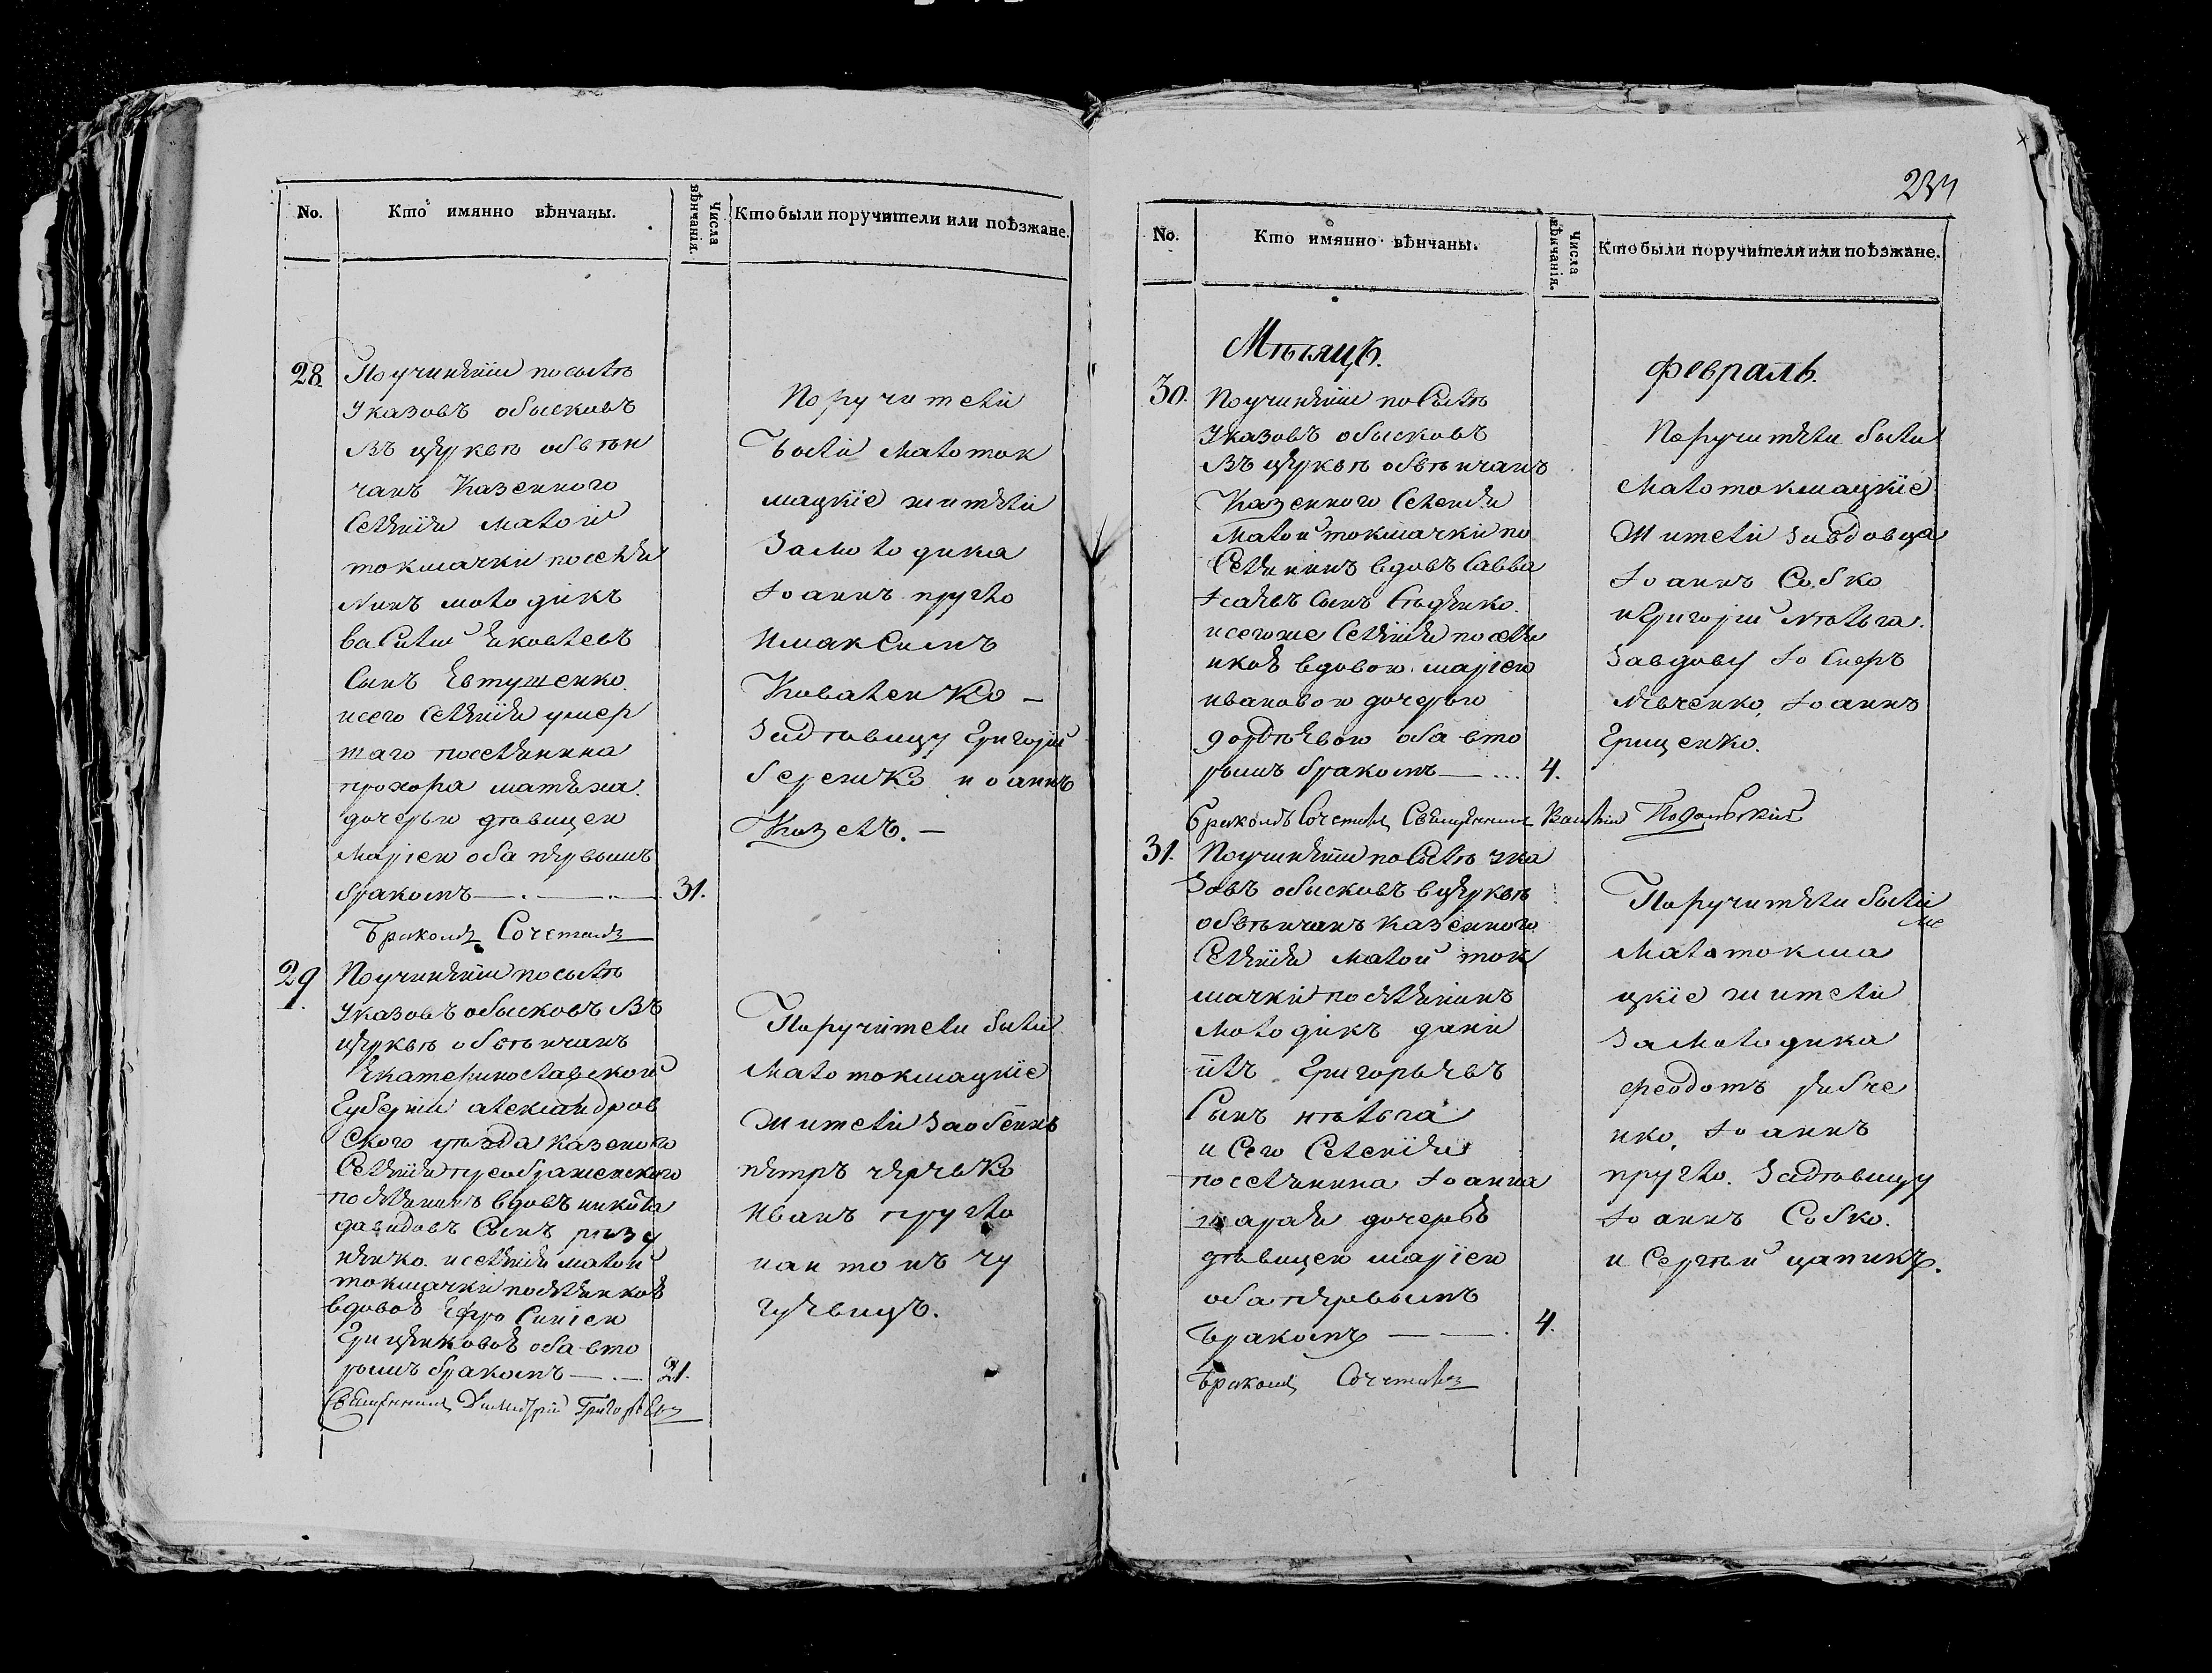 No.
Кто имянно вѣнчаны.
Числа вѣнчанія.
Кто были поручители или поѣзжане.
28.
Поучинѣніи посылѣ
Указовъ обысковъ
Въ церквѣ обвѣн
чанъ Казенного
Селѣнія Малой
токмачки поселя
Нинъ молодикъ
василій яковлевъ
Сынъ Евтушенко.
исего Селѣнія умер
шаго поселянина
прохора матѣха.
дочерью дѣвицею
Маріею оба первымъ
бракомъ
31.
Бракомъ Сочеталъ
Поручители
Были Малоток
мацкіе жители
За Молодика
Іоаннъ пругло
Имаксимъ
Коваленко
Задѣвицу Григорій
бережко иоаннъ
Козелъ.
29.
Поучинѣніи посылѣ
Указовъ обысковъ Въ
церквѣ обвѣнчанъ
Екатеринославской
Губерніи александров
ского уѣзда казеного
Селѣнія преображенского
поселянинъ вдовъ никита
давидовъ Сынъ рѣзу
ненко. иселѣнія малой
токмачки поселянкой
вдовой Ефросиніею
Гриценковой оба вто
рымъ бракомъ
21.
Священникъ Димитрій Григорьевъ
Поручители были
Малотокмацкіе
Жители Заобеихъ
петръ черчько
Иванъ пругло
иантонъ чу
гуевицъ.
234
No.
Кто имянно вѣнчаны.
Числа вѣнчанія.
Кто были поручители или поѣзжане.
Мѣсяцъ.
февраль.
30.
Поучинѣніи поСылѣ
Указовъ обысковъ
Въ церквѣ обвѣнчанъ
Казенного Селенія
Малой токмачки по
Селянинъ вдовъ Савва
Ісаевъ Сынъ
исегоже Селѣнія поселя
нкой вдовою маріею
ивановою дочерью
гордѣевою оба вто
рымъ бракомъ
4.
Бракомъ Сочеталъ Священникъ Василій Подольскій
Поручители были
Малотокмацкіе
Жители Завдовца
Іоаннъ Собко
иГригорій Нѣлыга.
Завдову Іосифъ
Левченко, Іоаннъ
Грищенко.
31.
Поучинѣніи поСылѣ ука
Зовъ обысковъ вцерквѣ
обвѣнчанъ казенного
Селѣнія Малой ток
мачки поселянинъ
Молодикъ дани
илъ Григорьевъ
Сынъ нѣлыга
и Сего Селенія
поселянина Іоанна
шарая дочерьѣ
дѣвицею маріею
оба первымъ
Бракомъ
4.
Бракомъ Сочеталъ
Поручители были
Малотокма
цкіе жители
За Молодика
Феодотъ рябче
нко, Іоаннъ
пругло. Задѣвицу
Іоаннъ Собко.
и Сергѣй цапикъ.